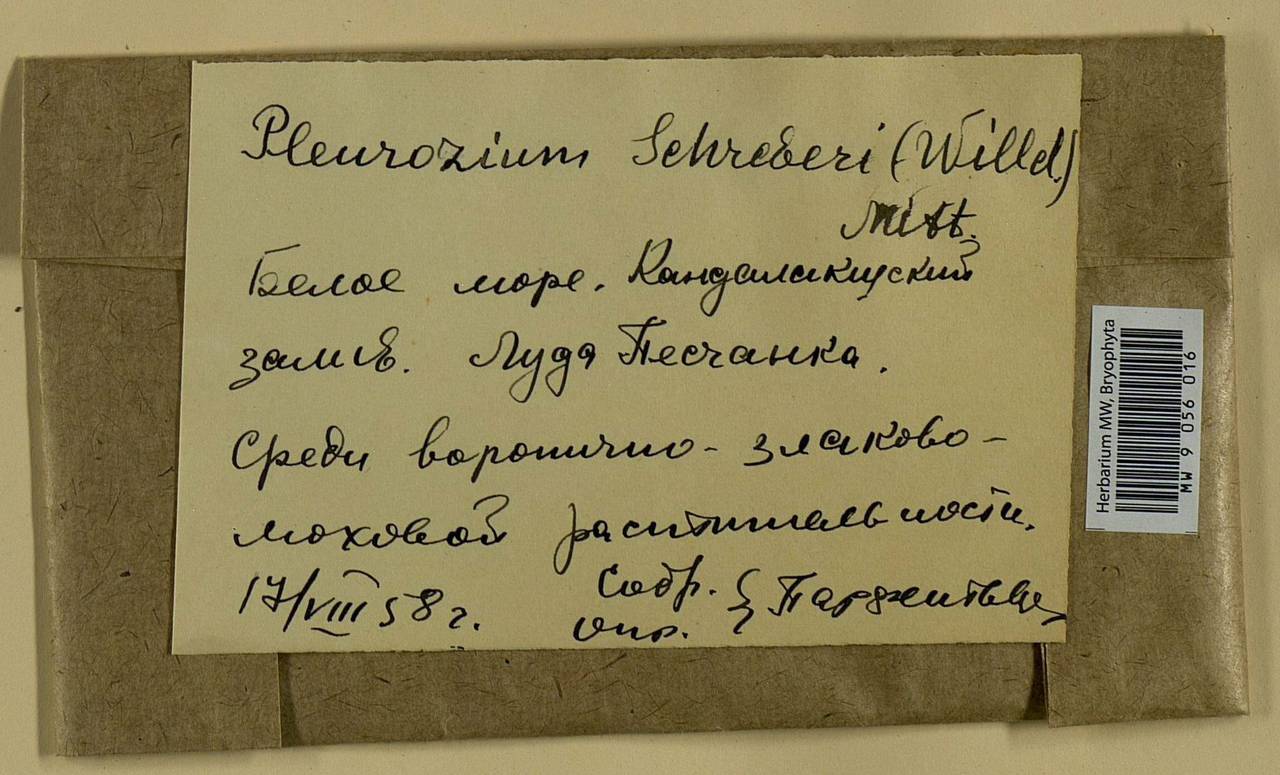 Pleurozium Schreberi (Willd.)
Mitt.
Белое море. Кандалакшский
залив. Луда Песчанка.
Среди воронично-злаково-
моховой растительности.
17/VIII 58 г. Собр.
Опр.
Herbarium MW, Bryophyta
MW 9 056 016